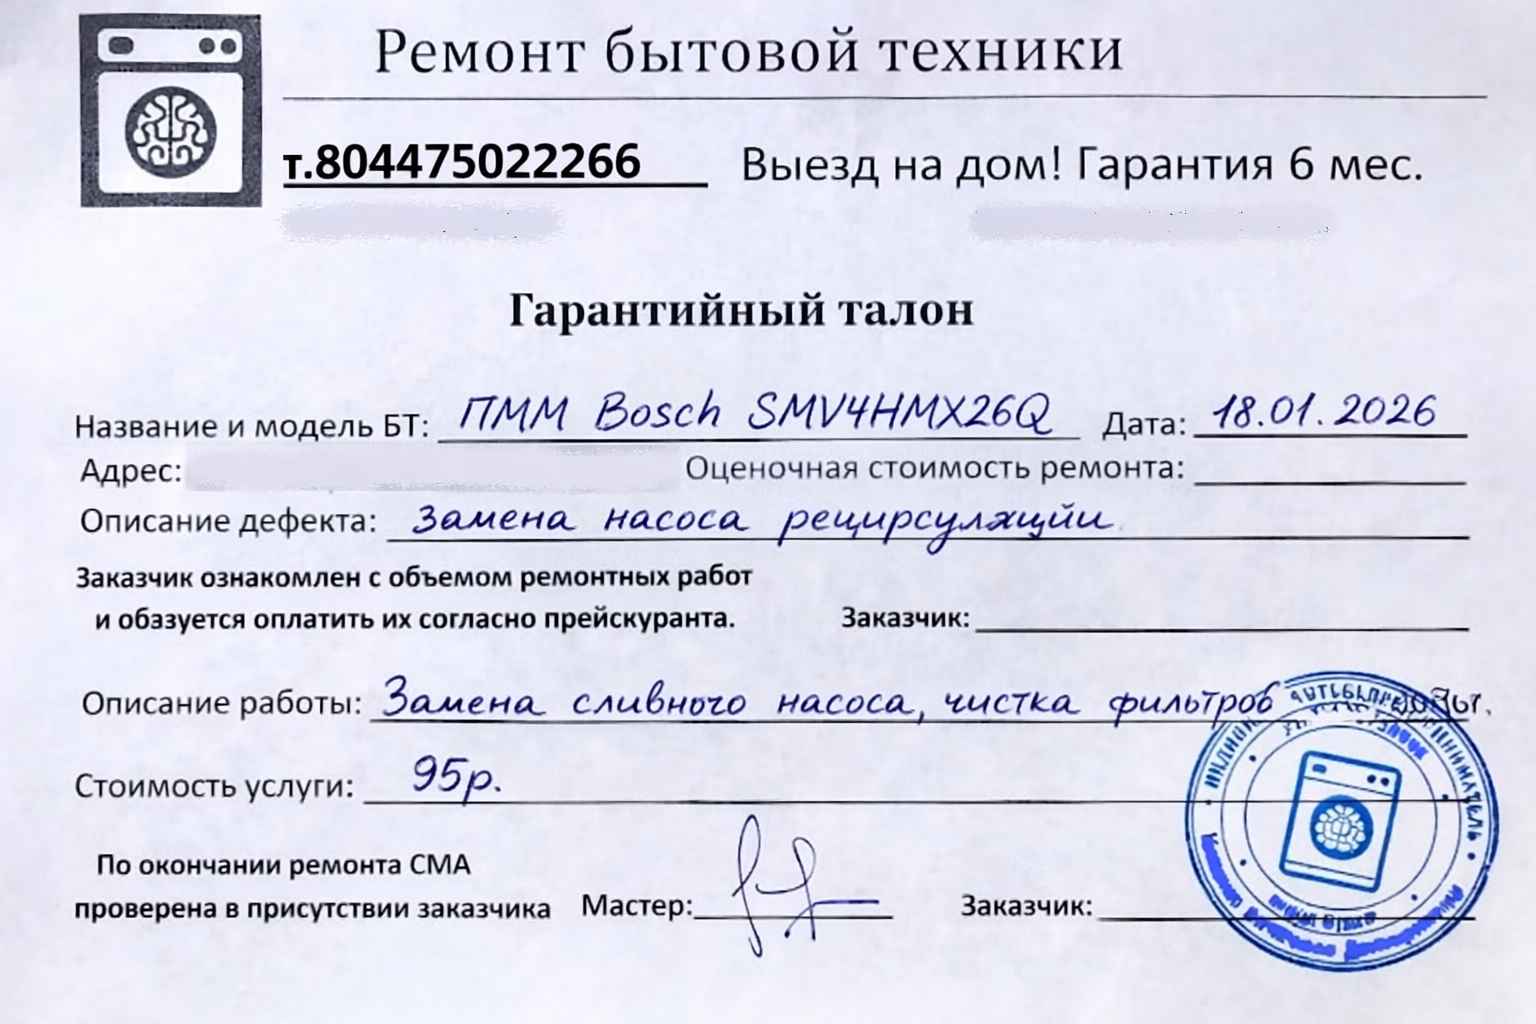 Ремонт бытовой техники
т.804475022266 Выезд на дом! Гарантия 6 мес.
Гарантийный талон
Название и модель БТ: ПММ Bosch SMV4HMX26Q Дата: 18.01.2026
Адрес: Оценочная стоимость ремонта:
Описание дефекта: Замена насоса рециркуляции
Заказчик ознакомлен с объемом ремонтных работ
и обазуется оплатить их согласно прейскуранта. Заказчик:
Описание работы: Замена сливного насоса, чистка фильтров
Стоимость услуги: 95р.
По окончании ремонта СМА
проверена в присутствии заказчика Мастер: Заказчик: